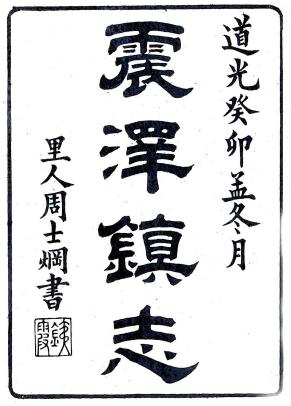 道光癸卯孟冬月
震澤鎮志
里人周士炳書